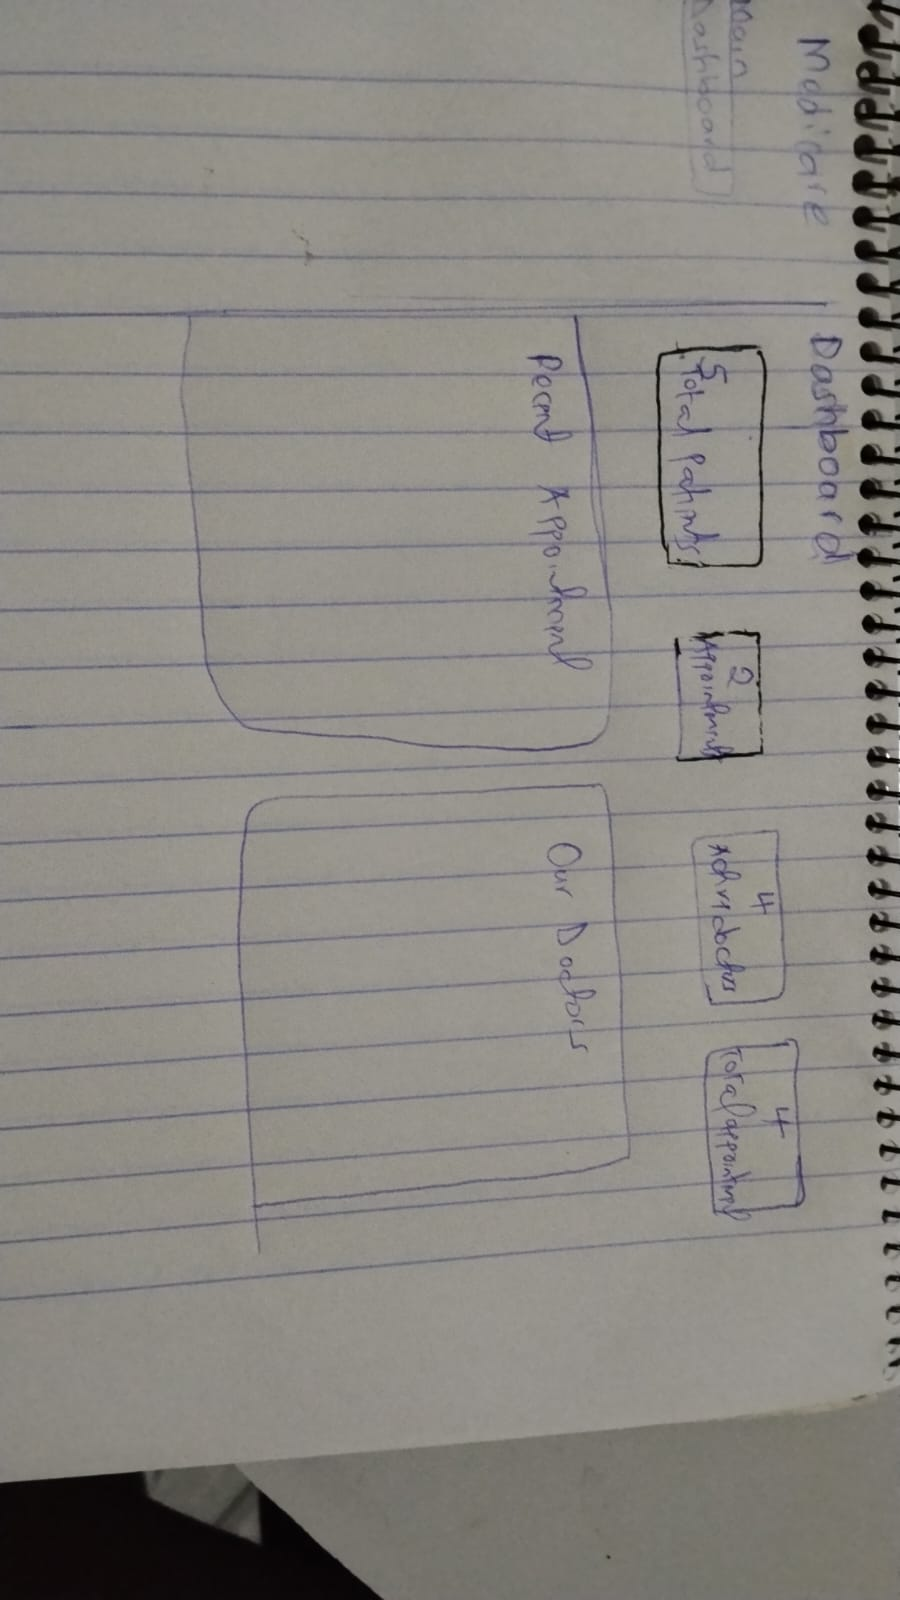 Medicare
Main
Dashboard
Dashboard
5
Total Patients
2
Appointments
4
Active doctors
4
Total appointment
Recent Appointment
Our Doctors